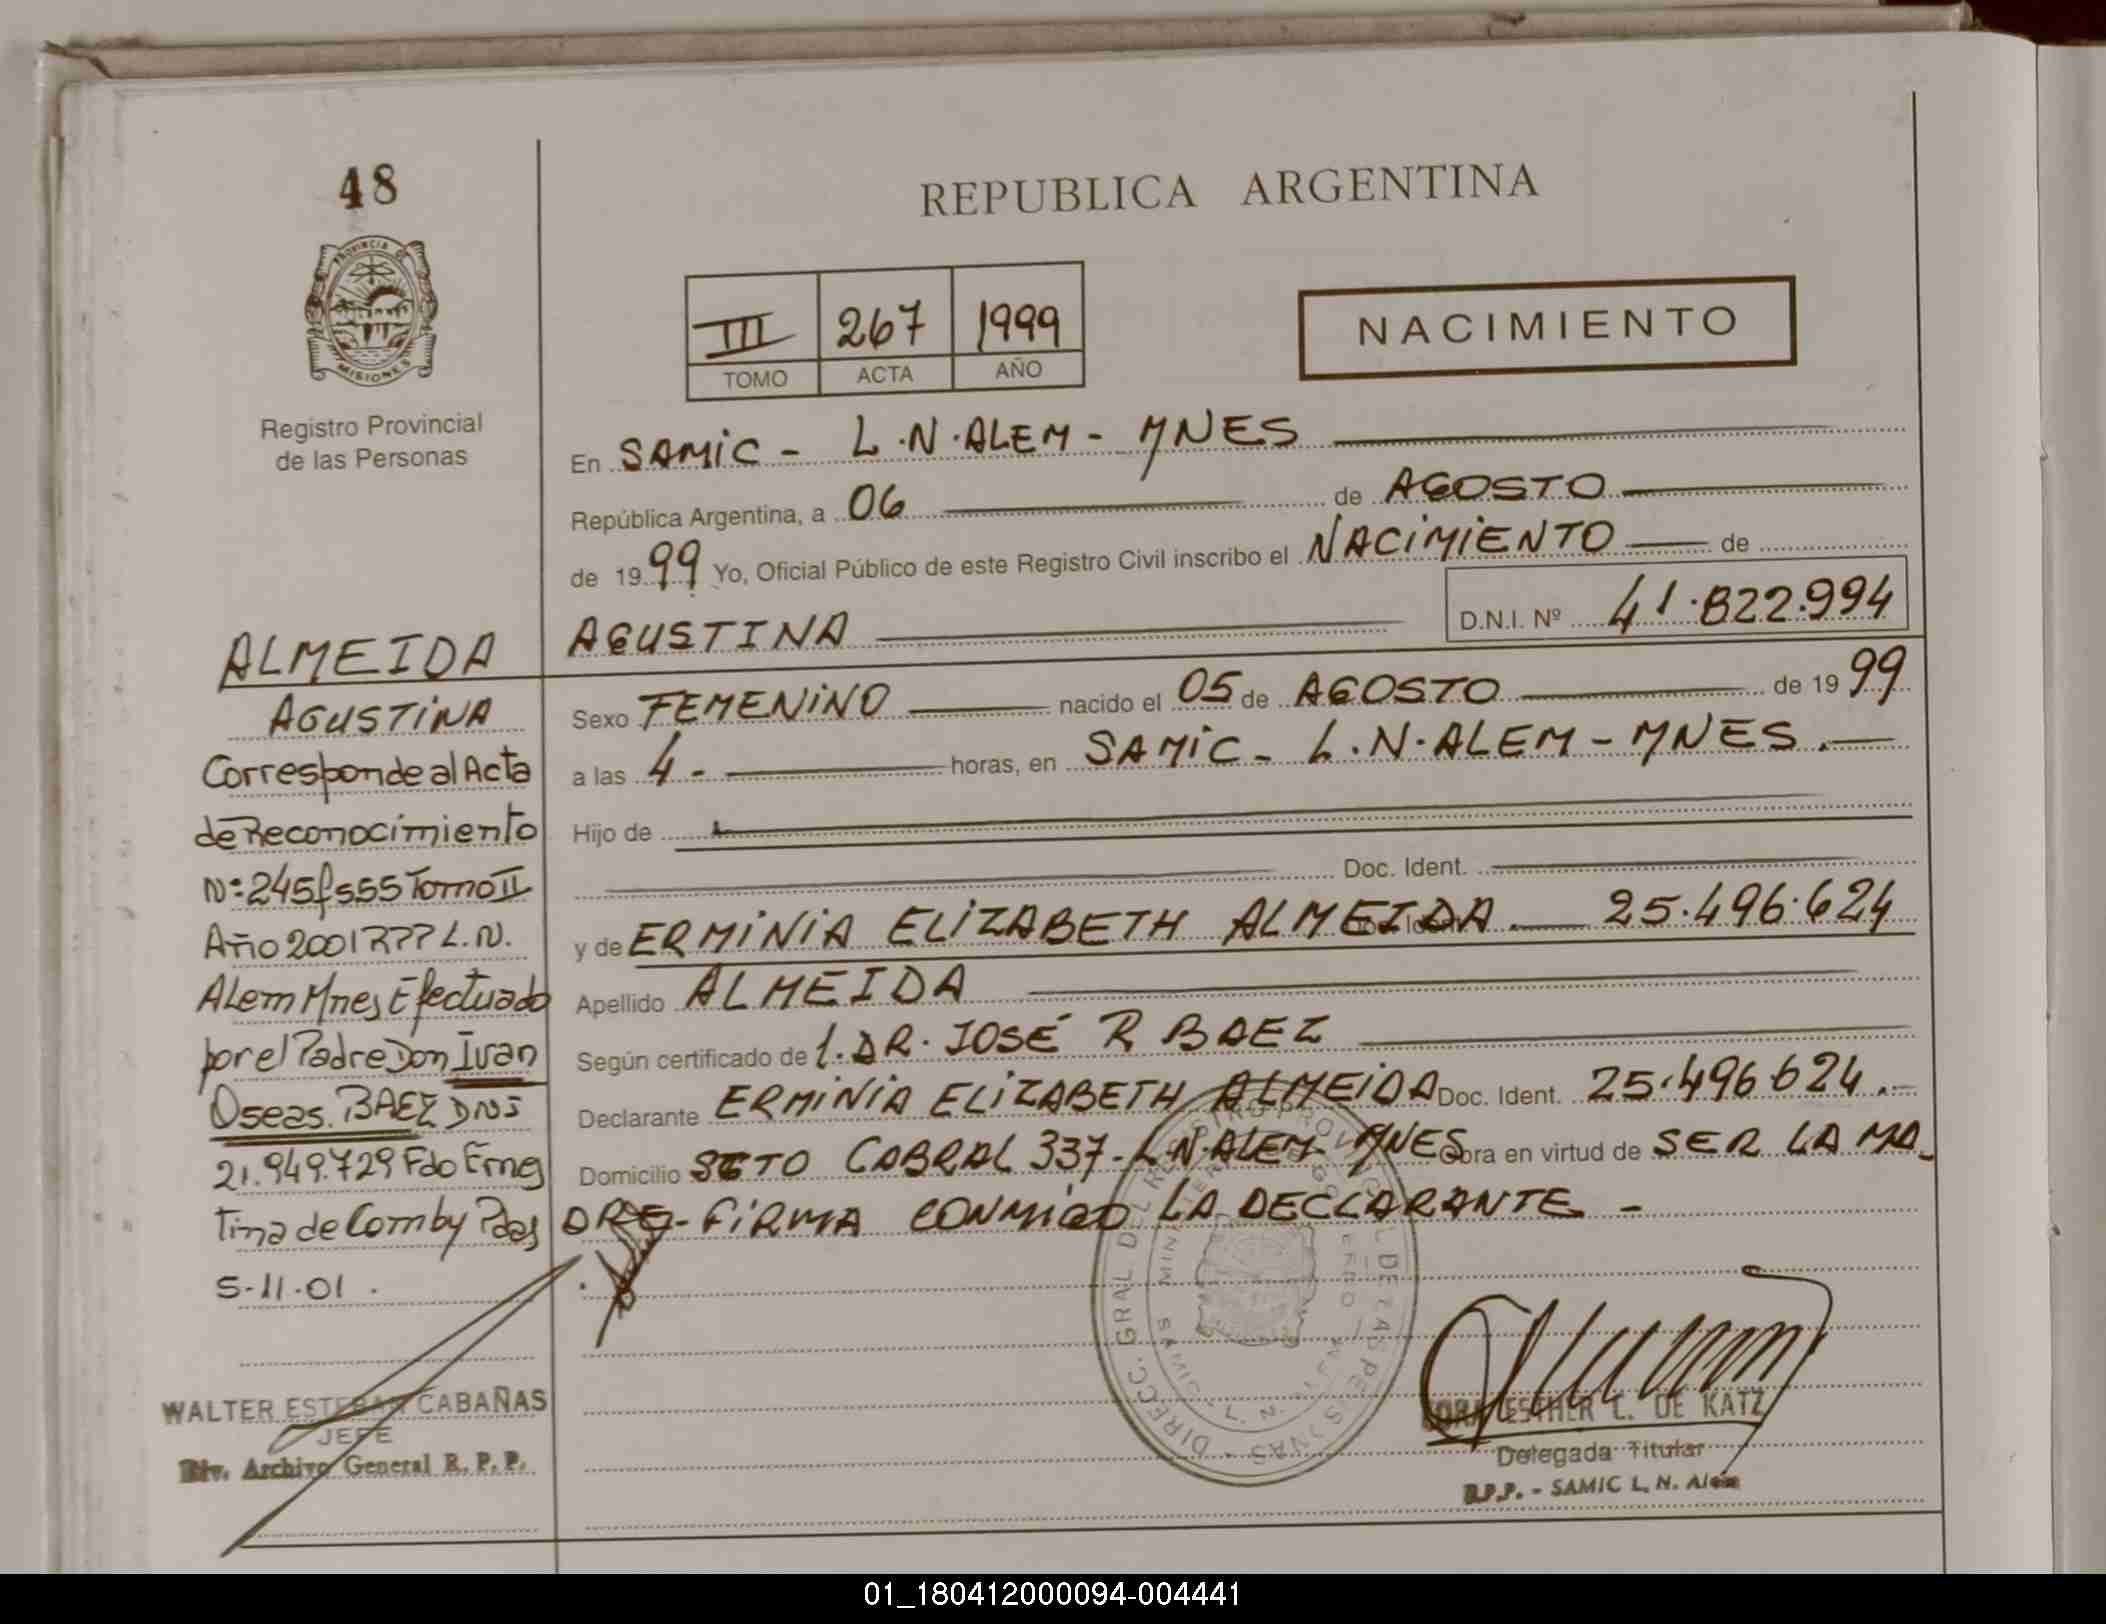 48
REPUBLICA ARGENTINA
PROVINCIA DE
MISIONES
Registro Provincial
de las Personas
III 267 1999
TOMO ACTA AÑO
NACIMIENTO
En SAMIC - L.N. ALEM - MNES
República Argentina, a 06 de AGOSTO
de 1999 Yo, Oficial Público de este Registro Civil inscribo el NACIMIENTO de
AGUSTINA D.N.I. Nº 41.822.994
Sexo FEMENINO nacido el 05 de AGOSTO de 1999
a las 4.- horas, en SAMIC - L.N. ALEM - MNES.
Hijo de
Doc. Ident.
y de ERMINIA ELIZABETH ALMEIDA. 25.496.624
Apellido ALMEIDA
Según certificado de l. DR. JOSÉ R BAEZ
Declarante ERMINIA ELIZABETH ALMEIDA Doc. Ident. 25.496.624.-
Domicilio SGTO CABRAL 337- L.N. ALEM- MNES Obra en virtud de SER LA MA-
DRE.- FIRMA CONMIGO LA DECLARANTE -
ALMEIDA
AGUSTINA
Corresponde al Acta
de Reconocimiento
Nº 245 fs 55 Tomo II
Año 2001 L.N.
Alem Mnes Efectuado
por el Padre Don Ivan
Oseas. BAEZ DNI
21.949.729 Fdo Ernes
tina de Comby
5-11-01.
WALTER ESTEBAN CABAÑAS
JEFE
Div. Archivo General R. P. P.
ESTHER L. DE KATZ
Delegada Titular
R.P.P. - SAMIC L. N. Alem
01_180412000094-004441